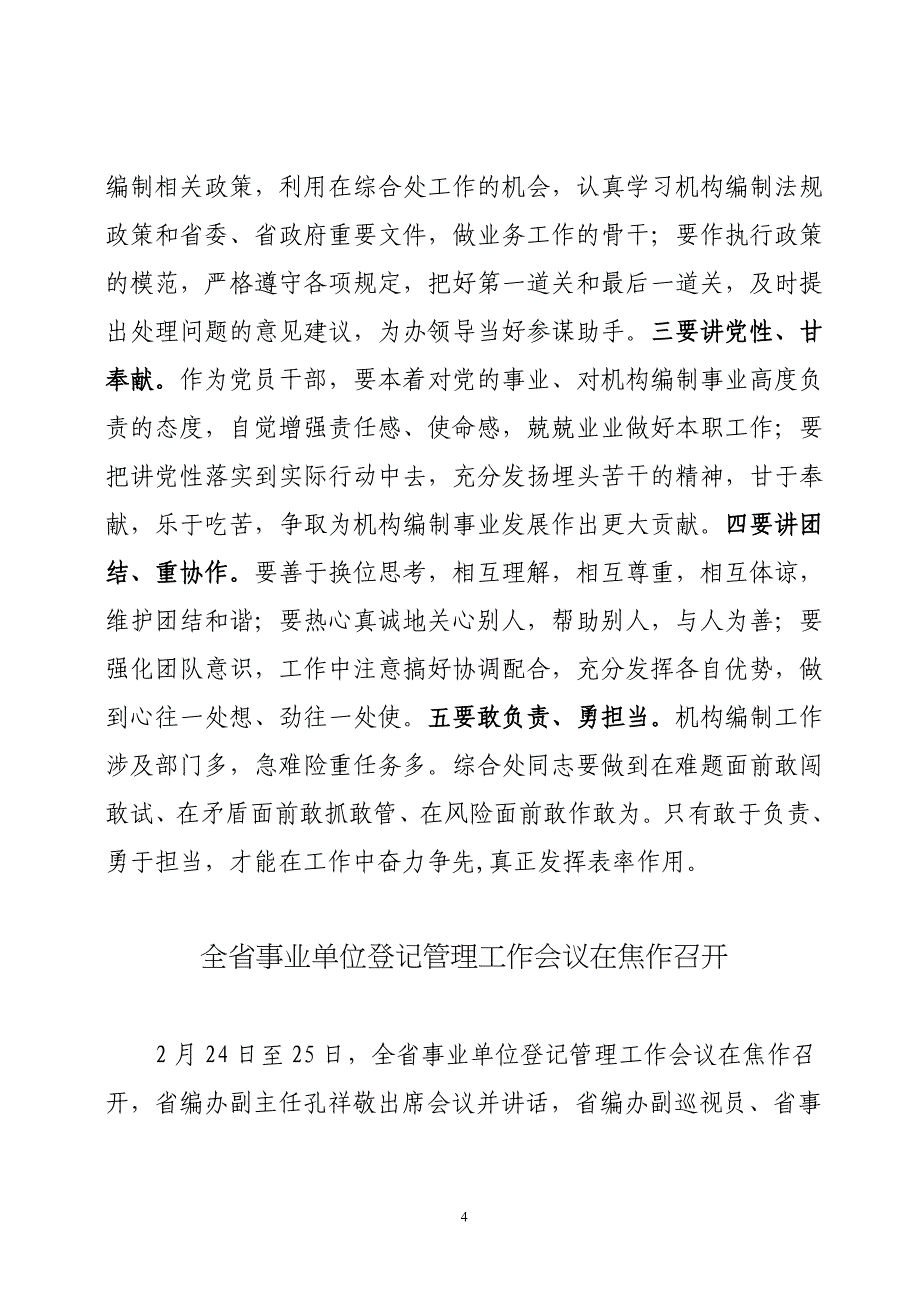 编制相关政策，利用在综合处工作的机会，认真学习机构编制法规
政策和省委、省政府重要文件，做业务工作的骨干；要作执行政策
的模范，严格遵守各项规定，把好第一道关和最后一道关，及时提
出处理问题的意见建议，为办领导当好参谋助手。三要讲党性、甘
奉献。作为党员干部，要本着对党的事业、对机构编制事业高度负
责的态度，自觉增强责任感、使命感，兢兢业业做好本职工作；要
把讲党性落实到实际行动中去，充分发扬埋头苦干的精神，甘于奉
献，乐于吃苦，争取为机构编制事业发展作出更大贡献。四要讲团
结、重协作。要善于换位思考，相互理解，相互尊重，相互体谅，
维护团结和谐；要热心真诚地关心别人，帮助别人，与人为善；要
强化团队意识，工作中注意搞好协调配合，充分发挥各自优势，做
到心往一处想、劲往一处使。五要敢负责、勇担当。机构编制工作
涉及部门多，急难险重任务多。综合处同志要做到在难题面前敢闯
敢试、在矛盾面前敢抓敢管、在风险面前敢作敢为。只有敢于负责、
勇于担当，才能在工作中奋力争先,真正发挥表率作用。
全省事业单位登记管理工作会议在焦作召开
2月24日至25日，全省事业单位登记管理工作会议在焦作召
开，省编办副主任孔祥敬出席会议并讲话，省编办副巡视员、省事
4